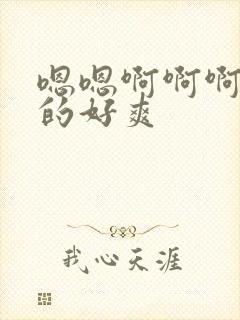 嗯嗯啊啊啊
的好爽
我心天涯